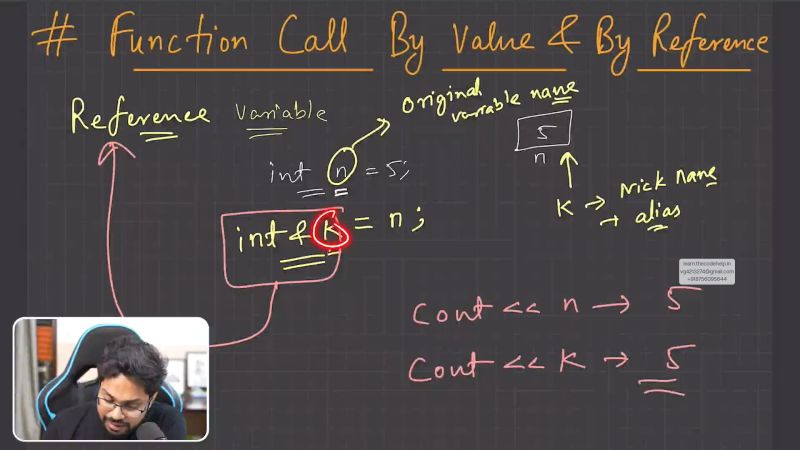 # Function Call By Value & By Reference
Reference Variable
Original variable name
int n = 5;
5
n
int & K = n;
K → Nick name
→ alias
learn.thecodehelp.in
vg4210274@gmail.com
+918756095644
Cout << n → 5
Cout << K → 5